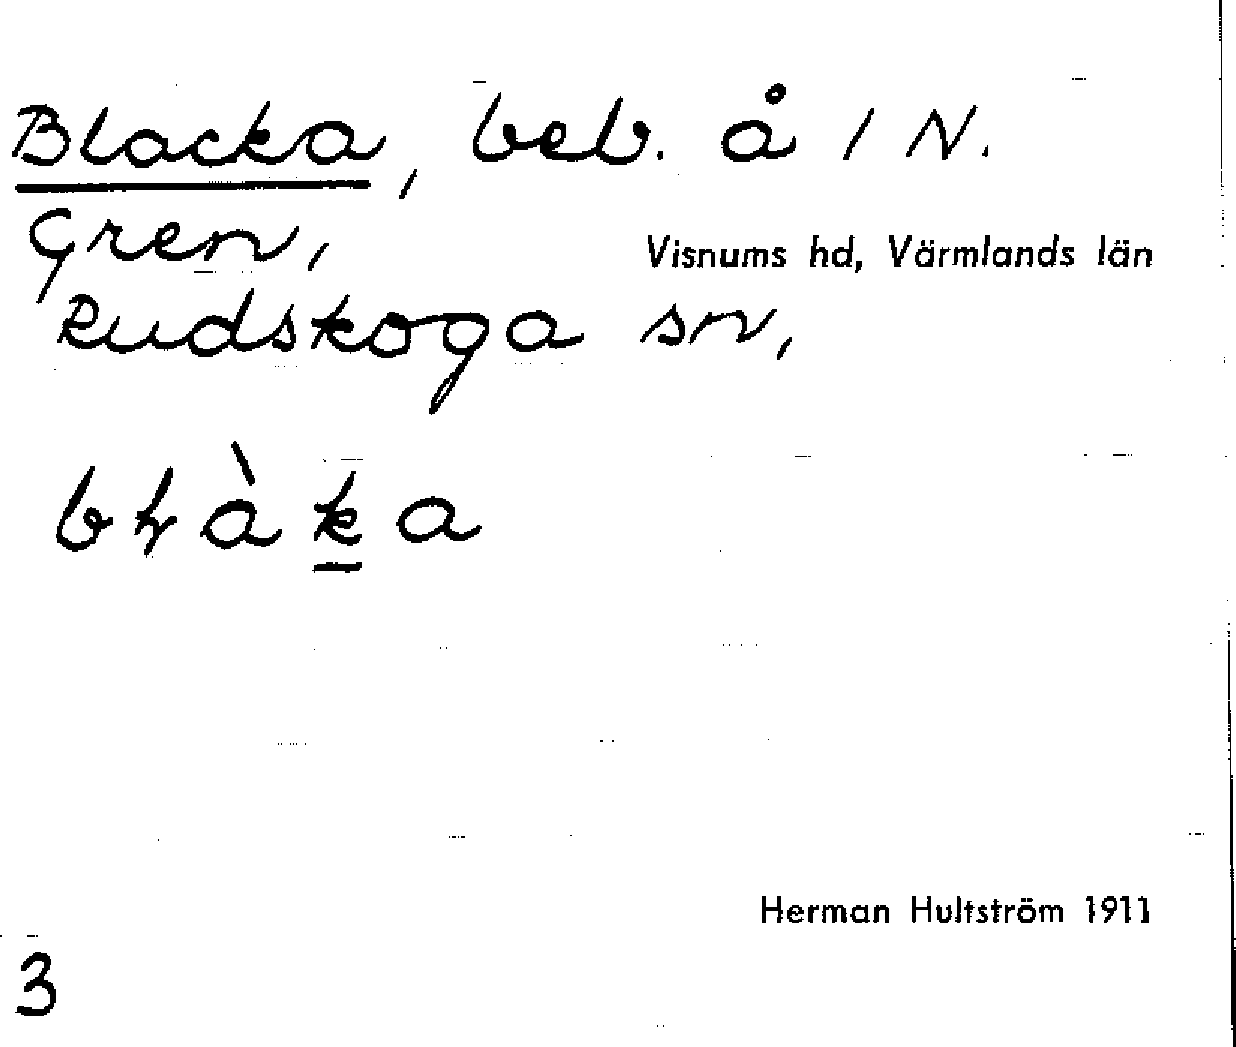 Blacka, beb. å 1 N.
Gren,
Visnums hd, Värmlands län
Rudskoga sn,
Herman Hultström 1911
3